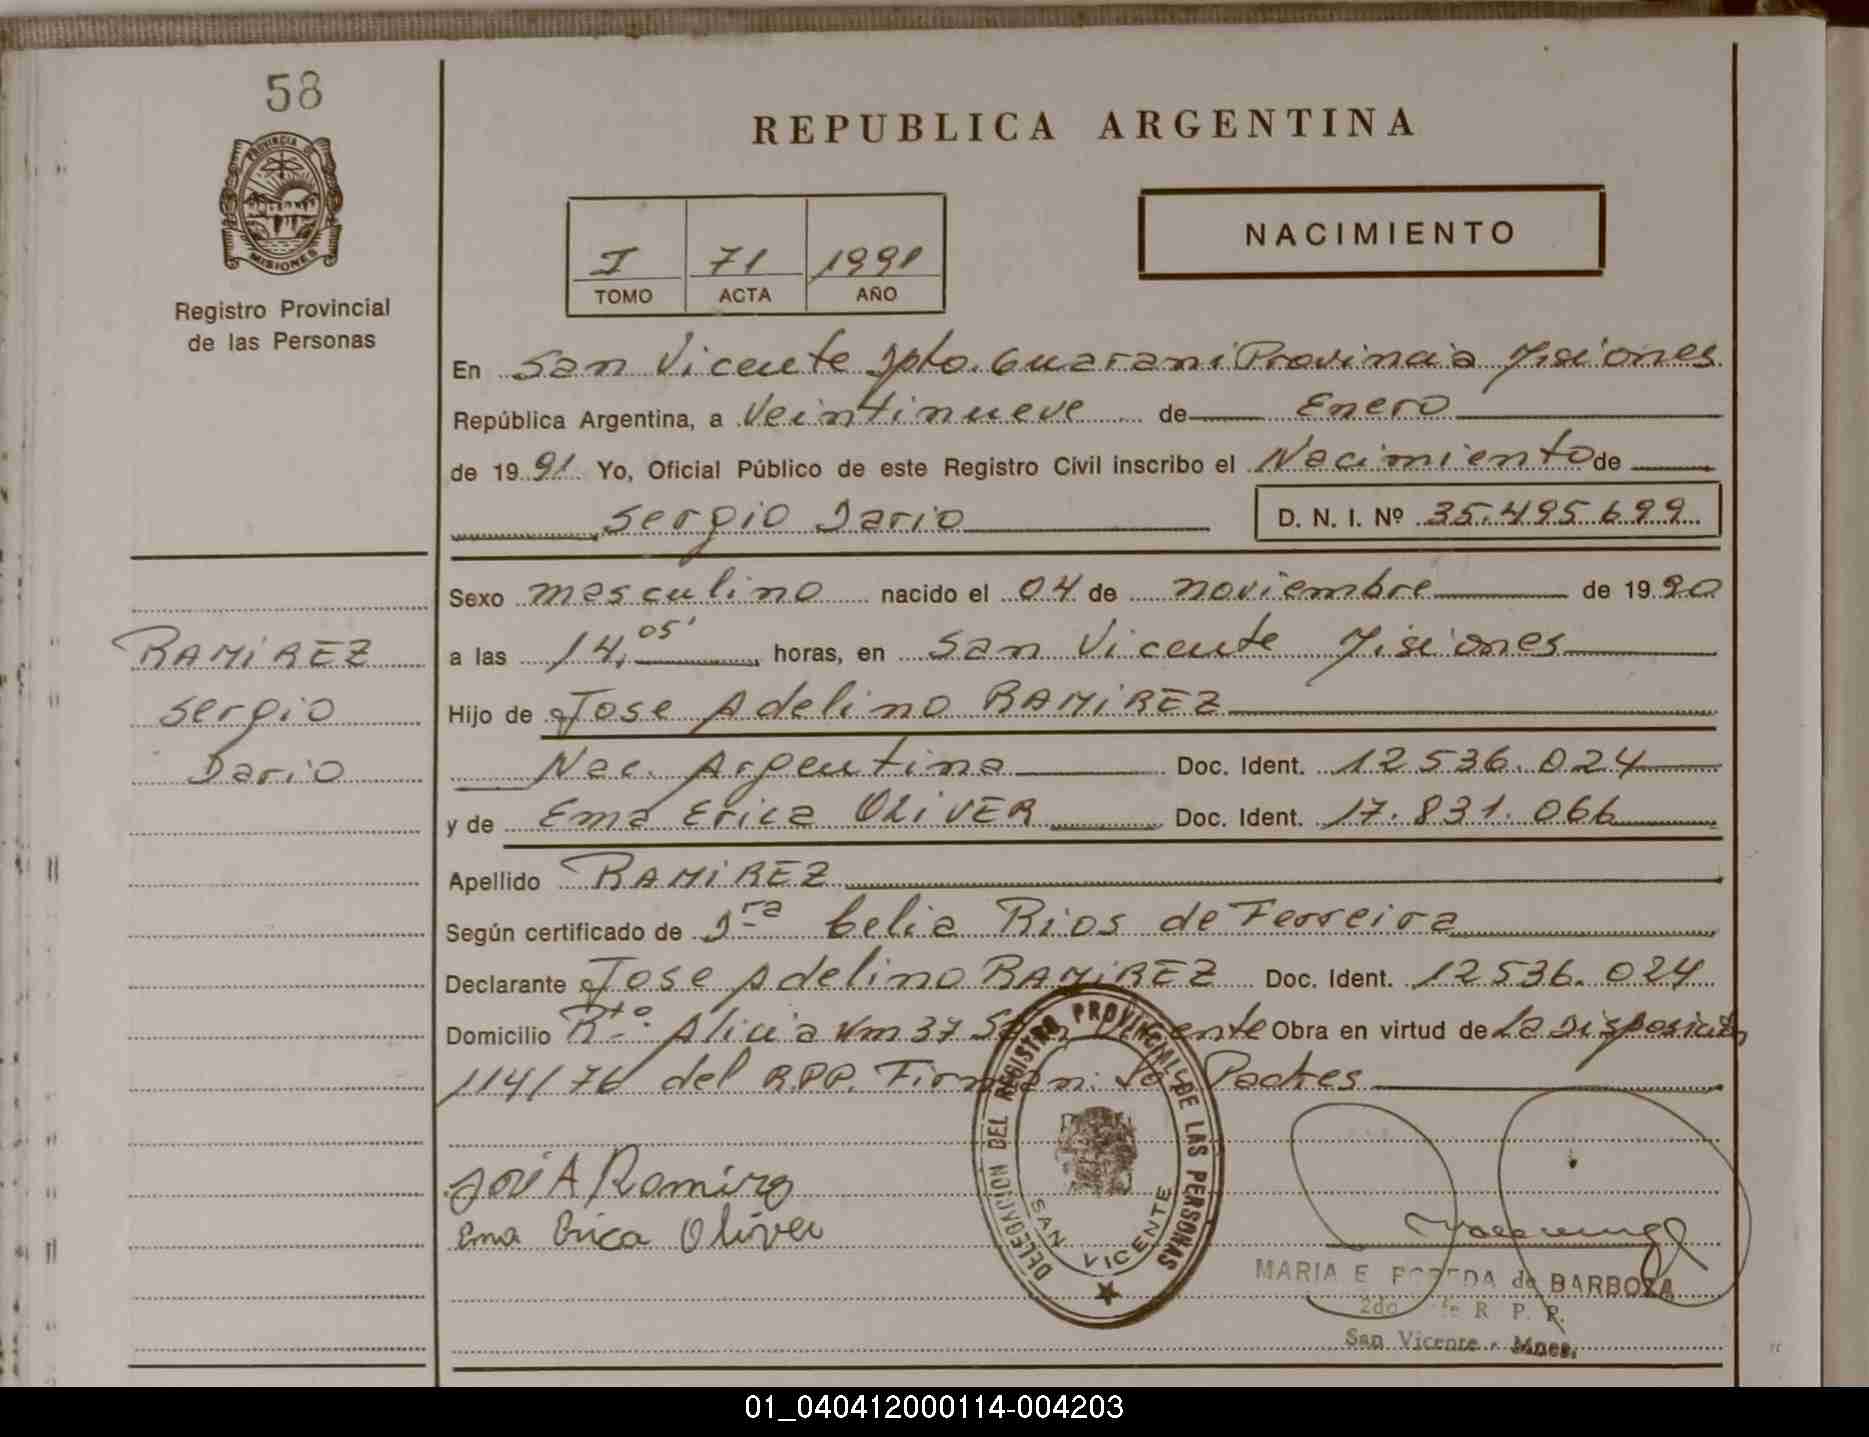 58
PROVINCIA DE
MISIONES
Registro Provincial
de las Personas
REPUBLICA ARGENTINA
I 71 1991
TOMO ACTA AÑO
NACIMIENTO
En San Vicente Dpto. Guarani Provincia Misiones
República Argentina, a Veintinueve de Enero
de 19 91 Yo, Oficial Público de este Registro Civil inscribo el Nacimiento de
Sergio Dario D. N. I. Nº 35.495.699
Sexo masculino nacido el 04 de noviembre de 19 90
a las 14,05' horas, en San Vicente Misiones
Hijo de Jose Adelino RAMIREZ
Nac. Argentina Doc. Ident. 12 536.024
y de Ema Erica OLIVER Doc. Ident. 17.831.066
Apellido RAMIREZ
Según certificado de Dra Celia Rios de Ferreira
Declarante Jose Adelino RAMIREZ Doc. Ident. 12 536.024
Domicilio Rto Alicia Km 37 San Vicente Obra en virtud de La Disposición
114/76 del R.P.P. Firman: Los Padres
RAMIREZ
Sergio
Dario
José A Ramirez
Ema Erica Oliver
DELEGACION DEL REGISTRO PROVINCIAL DE LAS PERSONAS
SAN VICENTE
MARIA E. de BARBOZA
2do R. P. P.
San Vicente - Mnes.
01_040412000114-004203